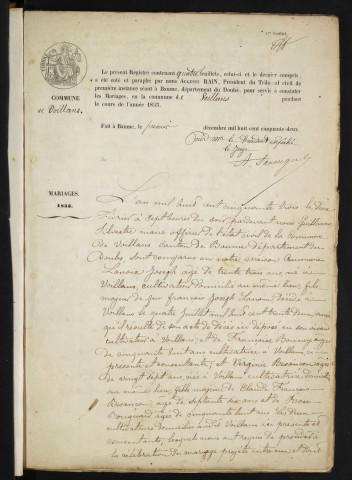 1er feuillet
Le présent Registre contenant quatre feuillets, celui-ci et le dernier compris,
a été coté et paraphé par nous Alexis BAIN, Président du Tribunal civil de
première instance séant à Baume, département du Doubs, pour servir à constater
les Mariages, en la commune de Voillans pendant
le cours de l'année 1853.
COMMUNE
de Voillans.
Fait à Baume, le premier décembre mil huit cent cinquante-deux.
Pour M. le Président empêché
le Juge
MARIAGES.
1853.
L'an mil huit cent cinquante trois le deux
Février à sept heures du soir, pardevant nous Guillaume
Silvestre maire officier de l'état civil de la Commune
de Voillans canton de Baume département du
Doubs sont comparus en notre maison commune
Lanoix Joseph âgé de trente trois ans né à
Voillans, cultivateur domicilié au même lieu, fils
majeur de feu François Joseph Lanoix décédé à
Voillans le quatre Juillet mil huit cent trente deux, ainsi
qu'il résulte de son acte de décès ici déposé en son vivant
cultivateur à Voillans, et de Françoise
de cinquante huit ans cultivatrice à Voillans ici
présente et consentante, et Virginie Besançon âgée
de vingt sept ans, née à Voillans cultivatrice domiciliée
au même lieu, fille majeure de Claude François
Besançon âgé de septante six ans et de
âgée de cinquante huit ans les deux
cultivateurs domiciliés audit Voillans ici présents et
consentants, lesquels nous ont requis de procéder à
la célébration du mariage projeté entre eux et dont